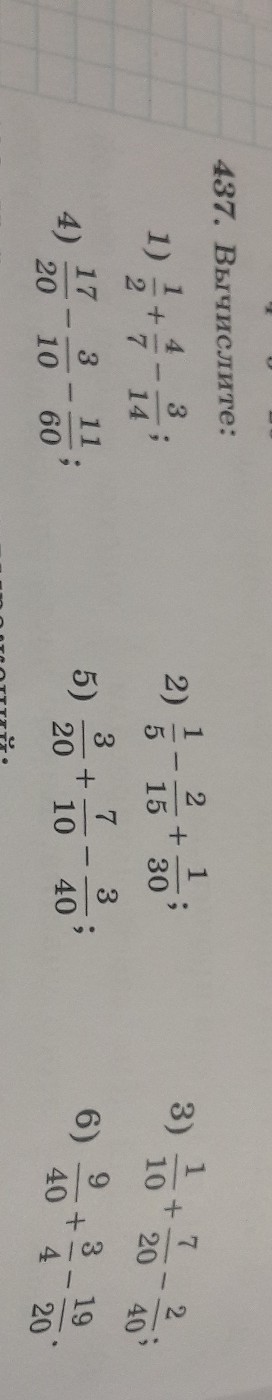 437. Вычислите:
1) 1/2 + 4/7 − 3/14; 2) 1/5 − 2/15 + 1/30; 3) 1/10 + 7/20 − 2/40;
4) 17/20 − 3/10 − 11/60; 5) 3/20 + 7/10 − 3/40; 6) 9/40 + 3/4 − 19/20.